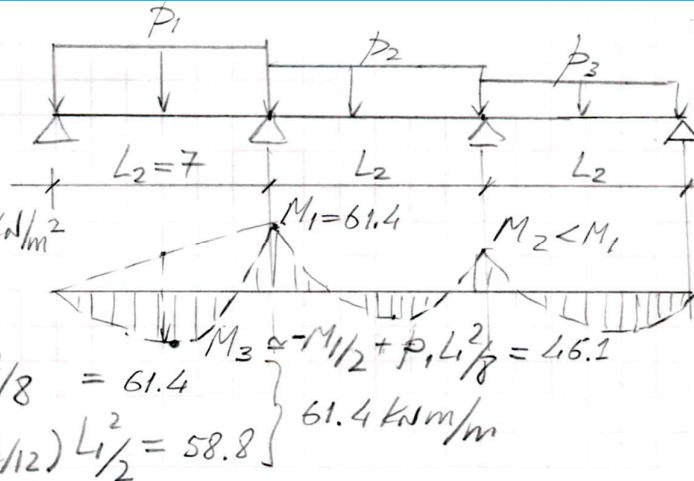 p1
p2
p3
L2=7
L2
L2
N/m²
M1=61.4
M2<M1
M3≃-M1/2+p1L1²/8=46.1
/8 = 61.4
/12) L1²/2 = 58.8
61.4 kNm/m